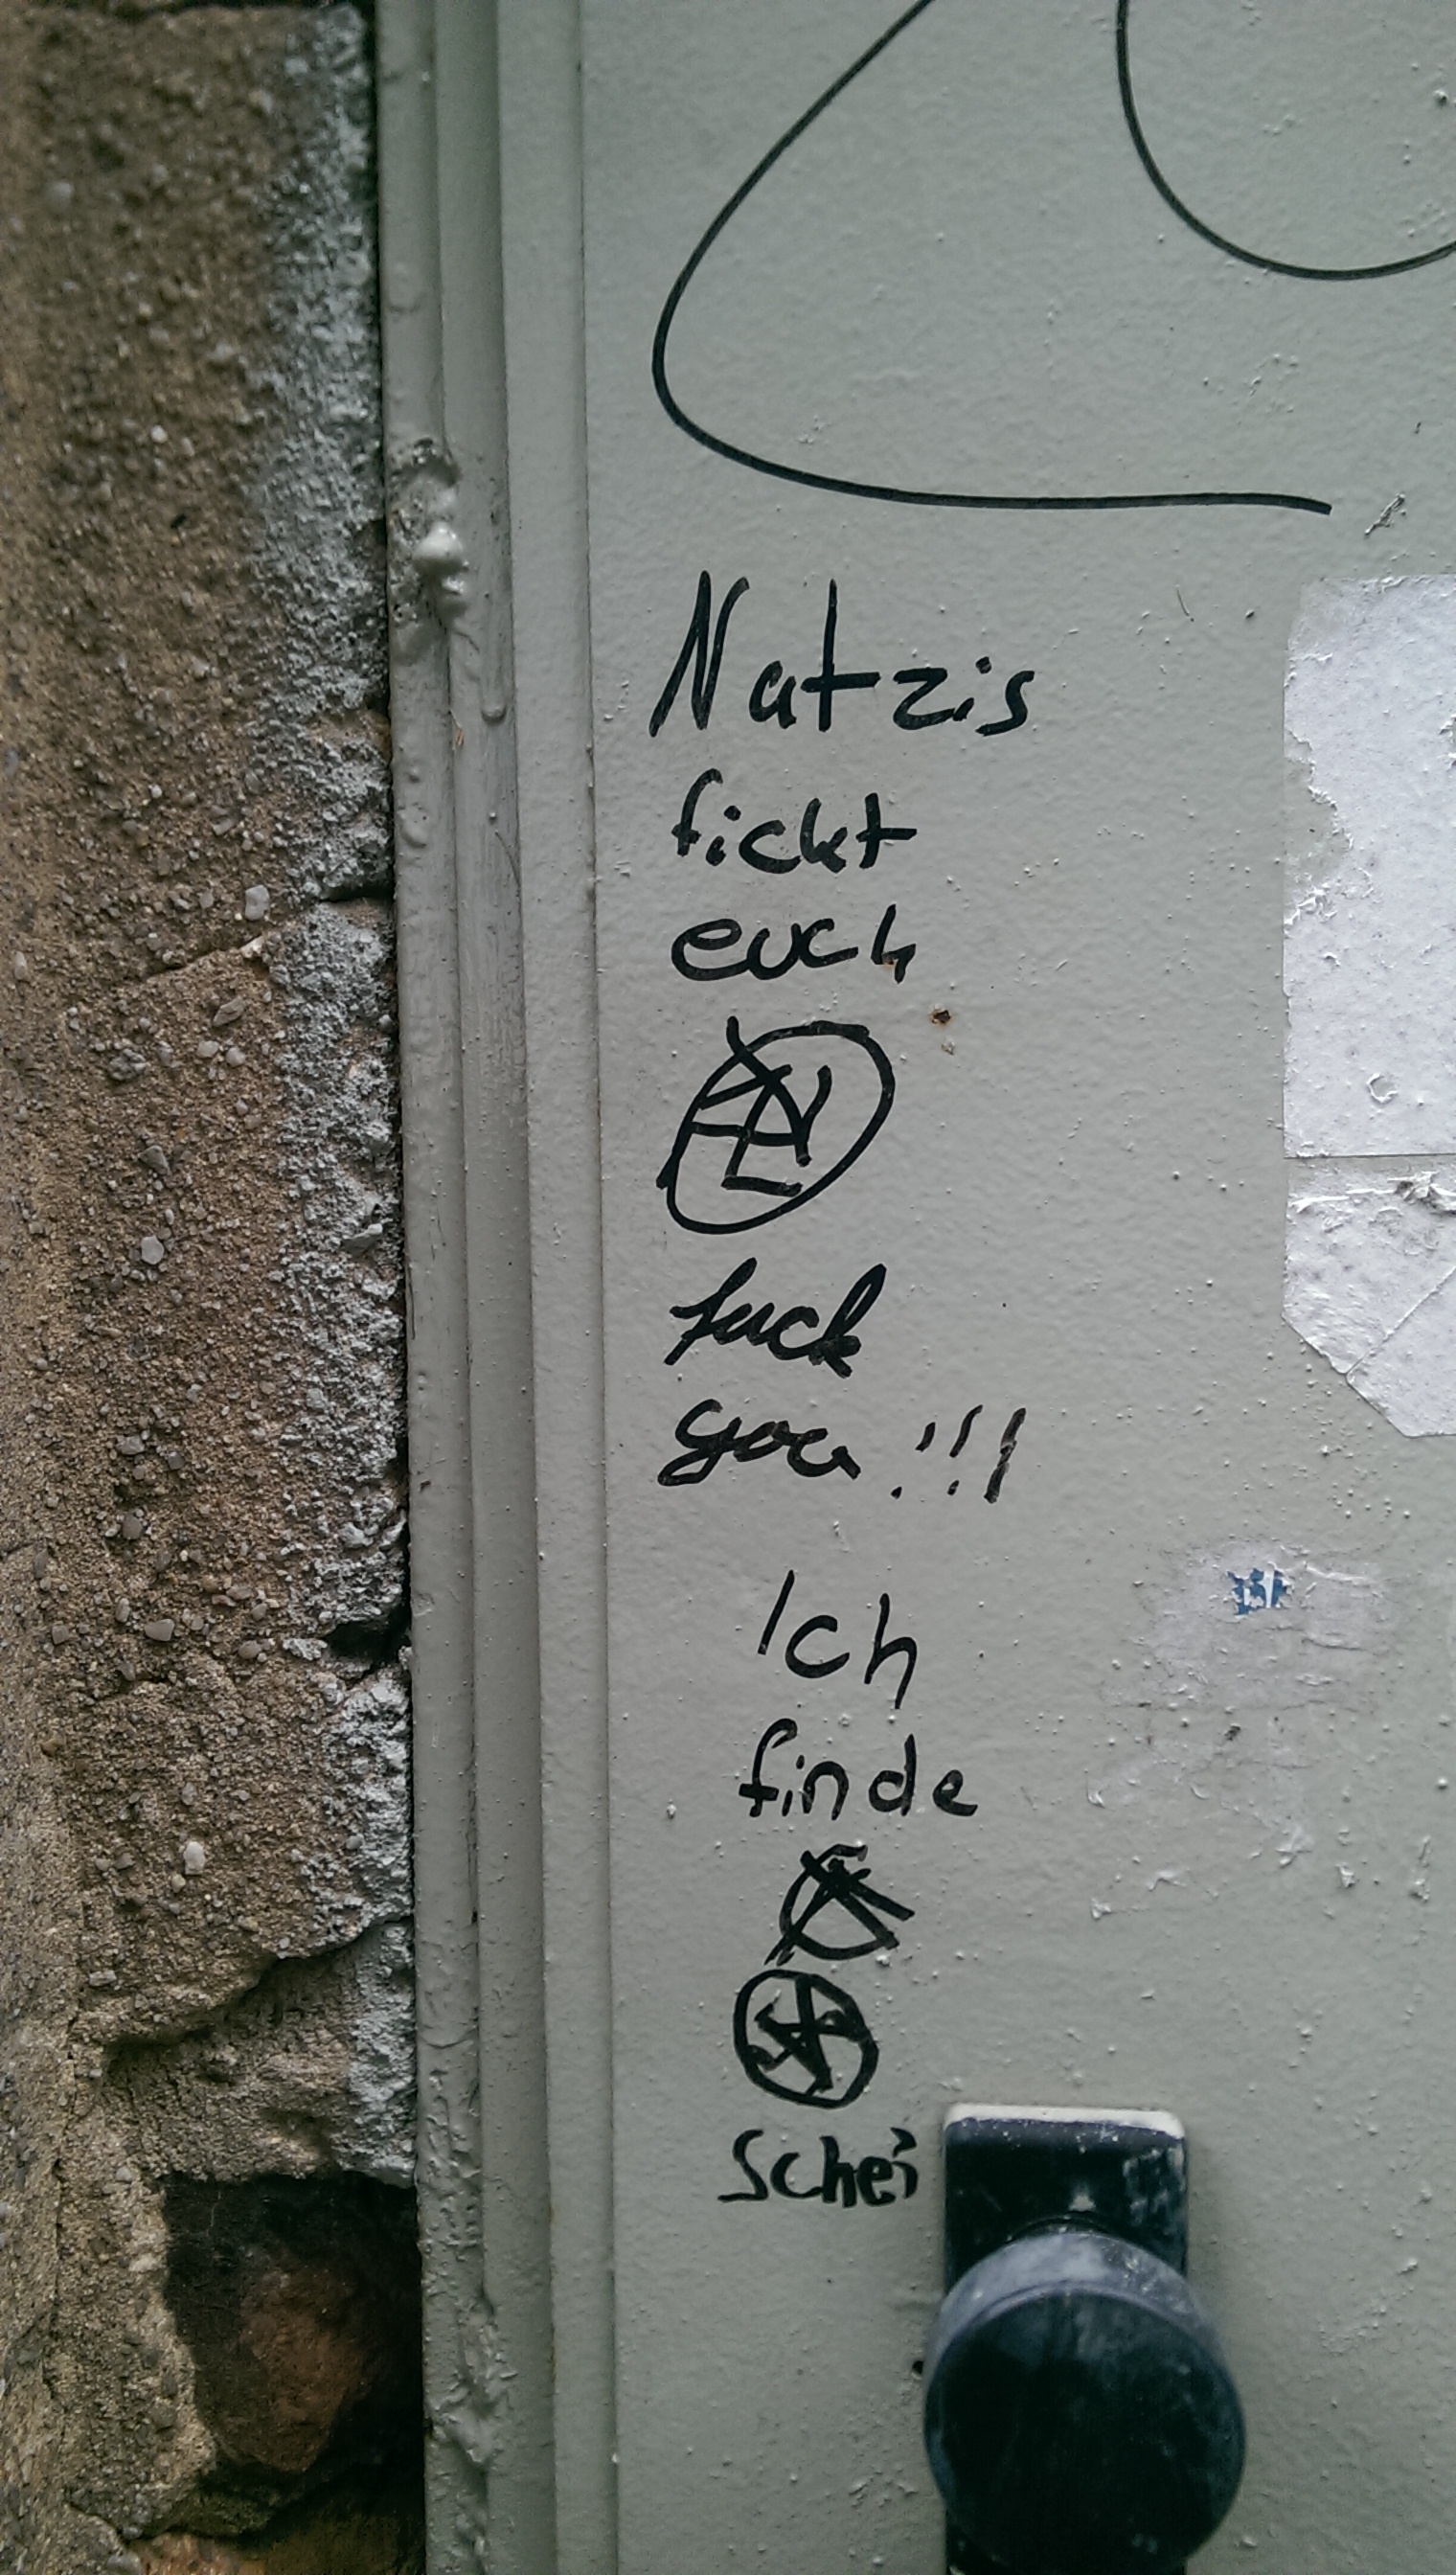 Natzis
fickt
euch
fuck
you !!!
Ich
finde
Schei